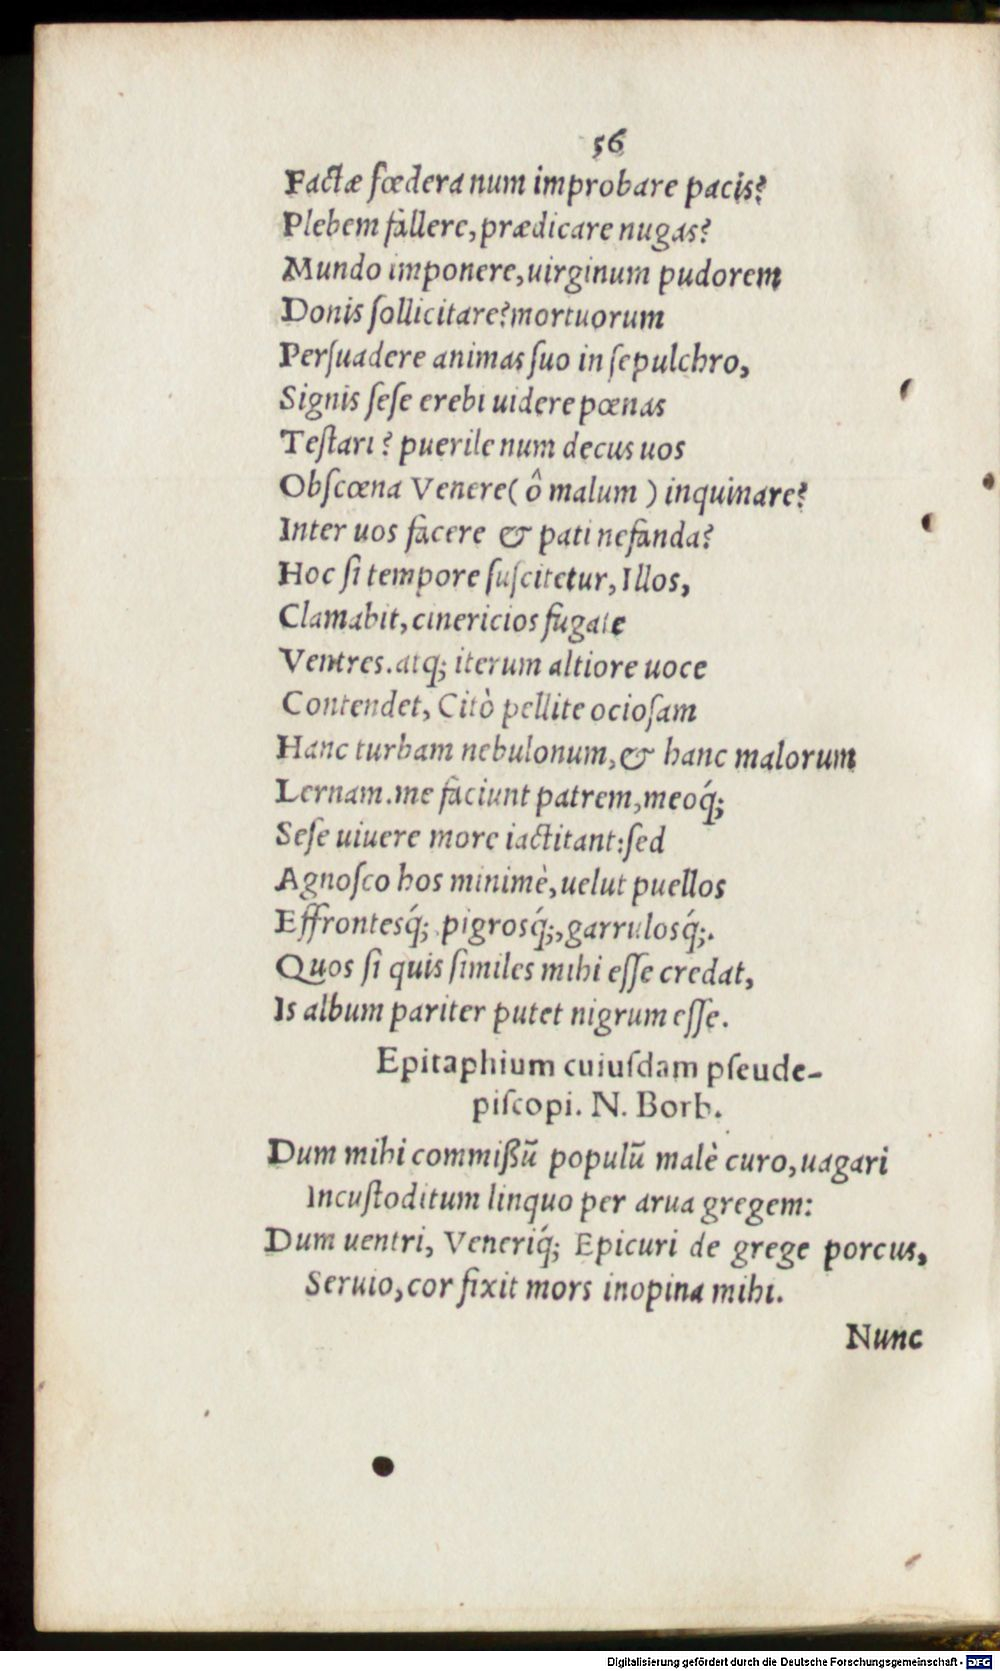 56
Factæ fœdera num improbare pacis?
Plebem fallere, prædicare nugas?
Mundo imponere, uirginum pudorem
Donis ſollicitare? mortuorum
Perſuadere animas ſuo in ſepulchro,
Signis ſeſe erebi uidere pœnas
Teſtari? puerile num decus uos
Obſcœna Venere( ô malum ) inquinare?
Inter uos facere & pati nefanda?
Hoc ſi tempore ſuſcitetur, Illos,
Clamabit, cinericios fugate
Ventres. atq; iterum altiore uoce
Contendet, Citò pellite ocioſam
Hanc turbam nebulonum, & hanc malorum
Lernam. me faciunt patrem, meoq́;
Seſe uiuere more iactitant: ſed
Agnoſco hos minimè, uelut puellos
Effronteſq́; pigroſq́;, garruloſq́;.
Quos ſi quis ſimiles mihi eſſe credat,
Is album pariter putet nigrum eſſe.
Epitaphium cuiuſdam pſeude-
piſcopi. N. Borb.
Dum mihi commißū populū malè curo, uagari
Incuſtoditum linquo per arua gregem:
Dum uentri, Veneriq́; Epicuri de grege porcus,
Seruio, cor fixit mors inopina mihi.
Nunc
Digitalisierung gefördert durch die Deutsche Forschungsgemeinschaft - DFG